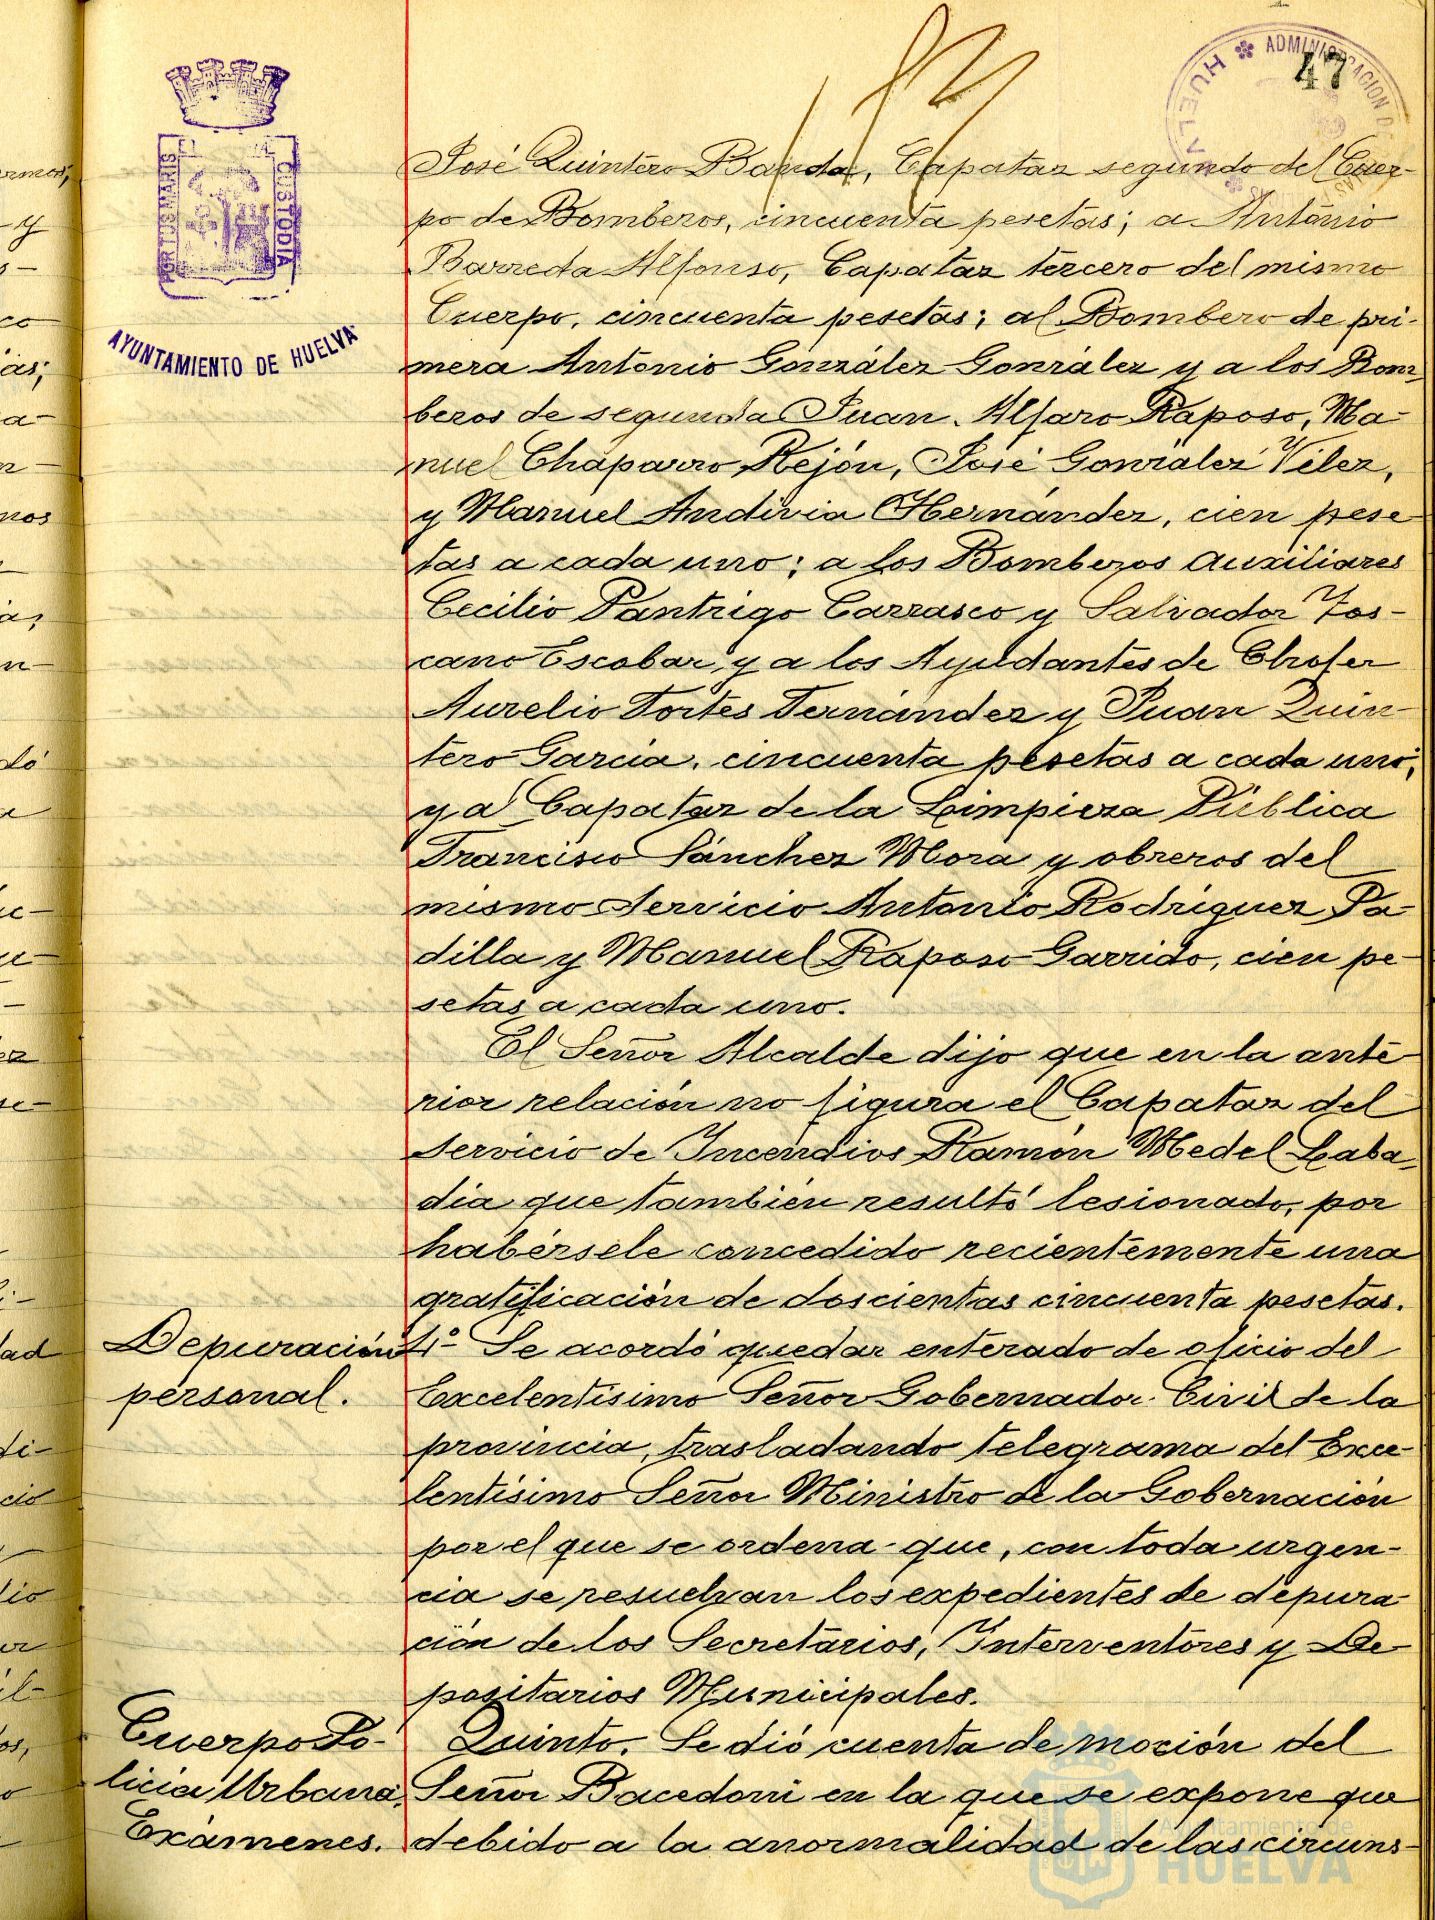 47
ADMINISTRACION DE
HUELVA
PORTUS MARIS CUSTODIA
AYUNTAMIENTO DE HUELVA
José Quintero Banda, Capataz segundo del Cuer-
po de Bomberos, cincuenta pesetas; a Antonio
Barreda Alfonso, Capataz tercero del mismo
Cuerpo, cincuenta pesetas; al Bombero de pri-
mera Antonio González González y a los Bom-
beros de segunda Juan Alfaro Raposo, Ma-
nuel Chaparro Rejón, José González Vélez,
y Manuel Andivia Hernández, cien pese-
tas a cada uno; a los Bomberos auxiliares
Cecilio Pantrigo Carrasco y Salvador Tos-
cano Escobar y a los Ayudantes de Chofer
Aurelio Fortes Fernández y Juan Quin-
tero García, cincuenta pesetas a cada uno;
y al Capataz de la Limpieza Pública
Francisco Sánchez Mora y obreros del
mismo Servicio Antonio Rodríguez Pa-
dilla y Manuel Raposo Garrido, cien pe-
setas a cada uno.
El Señor Alcalde dijo que en la ante-
rior relación no figura el Capataz del
Servicio de Incendios Ramón Medel Laba-
día que también resultó lesionado, por
habérsele concedido recientemente una
gratificación de doscientas cincuenta pesetas.
Depuración
personal.
4º Se acordó quedar enterado de oficio del
Excelentísimo Señor Gobernador Civil de la
provincia, trasladando telegrama del Exce-
lentísimo Señor Ministro de la Gobernación
por el que se ordena que, con toda urgen-
cia se resuelvan los expedientes de depura-
ción de los Secretarios, Interventores y De-
positarios Municipales.
Cuerpo Po-
licía Urbana.
Exámenes.
Quinto. Se dió cuenta de moción del
Señor Bacedoni en la que se expone que
debido a la anormalidad de las circuns-
Ayuntamiento de
HUELVA